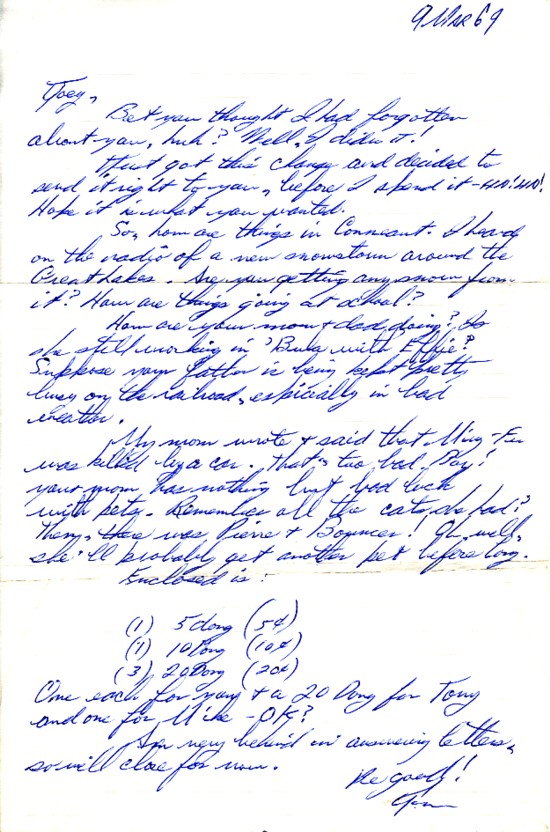 9 Mar 69
Joey,
Bet you thought I had forgotten
about you, huh? Well, I didn't!
Just got this change and decided to
send it right to you, before I spend it - HO! HO!
Hope it is what you wanted.
So, how are things in Conneaut. I heard
on the radio of a new snowstorm around the
Great Lakes. Are you getting any snow from
it? How are things going at school?
How are your mom & dad doing? Is
she still working in 'Bula with Effie?
Suppose your father is being kept pretty
busy on the railroad, especially in bad
weather.
My mom wrote & said that Ming-Fu
was killed by a car. That's too bad. Boy!
your mom has nothing but bad luck
with pets. Remember all the cats she had?
Then, there was Pierre & Bouncer! Oh, well,
she'll probably get another pet before long.
Enclosed is:
(1) 5 dong (5¢)
(1) 10 Dong (10¢)
(3) 20 Dong (20¢)
One each for you & a 20 Dong for Tony
and one for Mike - OK?
Am very behind in answering letters,
so will close for now.
Be good!